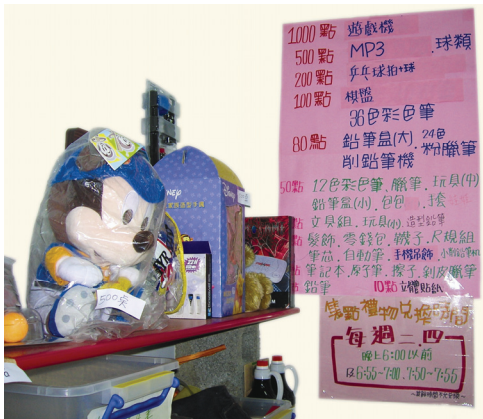 1,000點 遊戲機
500點 MP3 .球類
200點 乒乓球拍+球
100點 棋盤
36色彩色筆
80點 鉛筆盒(大).24色粉臘筆
削鉛筆機
50點 12色彩色筆.臘筆.玩具(中)
鉛筆盒(小).包包.手套
點 文具組.玩具(小).造型鉛筆
點 髮飾.零錢包.襪子.尺規組
筆芯.自動筆.手機吊飾.小削鉛筆機
點 筆記本.原子筆.擦子.剝皮臘筆
鉛筆 10點 立體貼紙
集點禮物兌換時間
每週二.四
晚上6:00以前
及6:55~7:00.7:50~7:55
500點
DISNEY